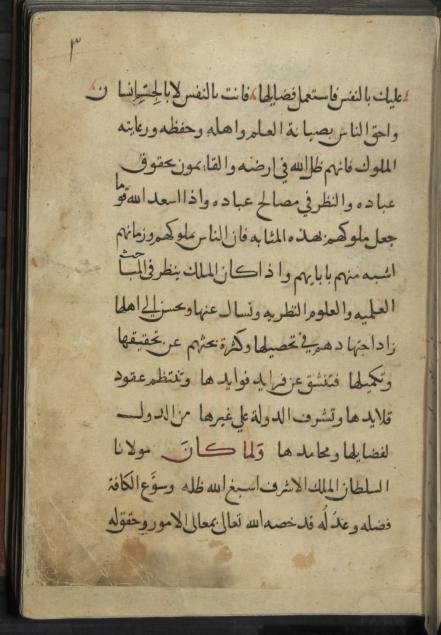 ٣
عليك بالنفس فاستعمل فضايلها فانت بالنفس لا بالجسم انسان
واحق الناس بصيانة العلم واهله وحفظه ورعايته
الملوك فانهم ظل الله في ارضه والقايمون بحقوق
عباده والنظر في مصالح عباده واذا اسعد الله قوما
جعل ملوكهم بهذه المثابه فان الناس بملوكهم وزمانهم
اشبه منهم بابايهم واذا كان الملك ينظر في المباحث
العلميه والعلوم النظريه ويسال عنها ويحسن الى اهلها
زاد اجتهادهم في تحصيلها وكثرة بحثهم عن تحقيقها
وتكميلها فتنشق عن فرايد فوايدها وتنتظم عقود
قلايدها وتشرف الدولة على غيرها من الدول
لفضايلها ومحامدها ولما كان مولانا
السلطان الملك الاشرف اسبغ الله ظله وسوغ الكافة
فضله وعدله قد خصه الله تعالى بمعالى الامور وحقق له